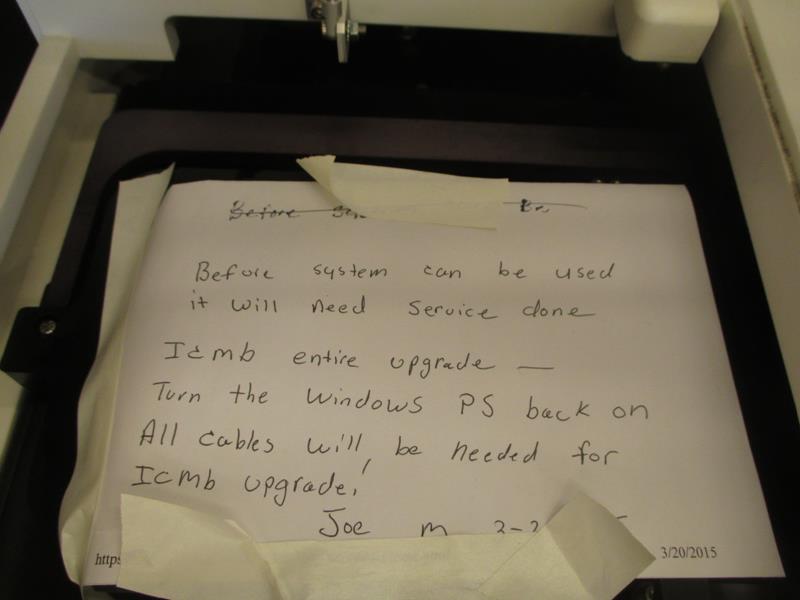 Before
Before system can be used
it will need service done
Icmb entire upgrade —
Turn the windows PS back on
All cables will be needed for
Icmb upgrade!
Joe M
http
3/20/2015